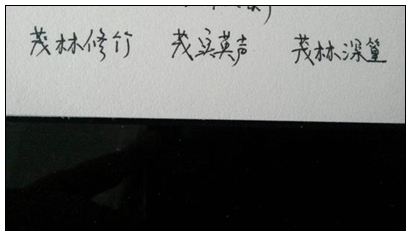 茂林修竹 茂实英声 茂林深篁